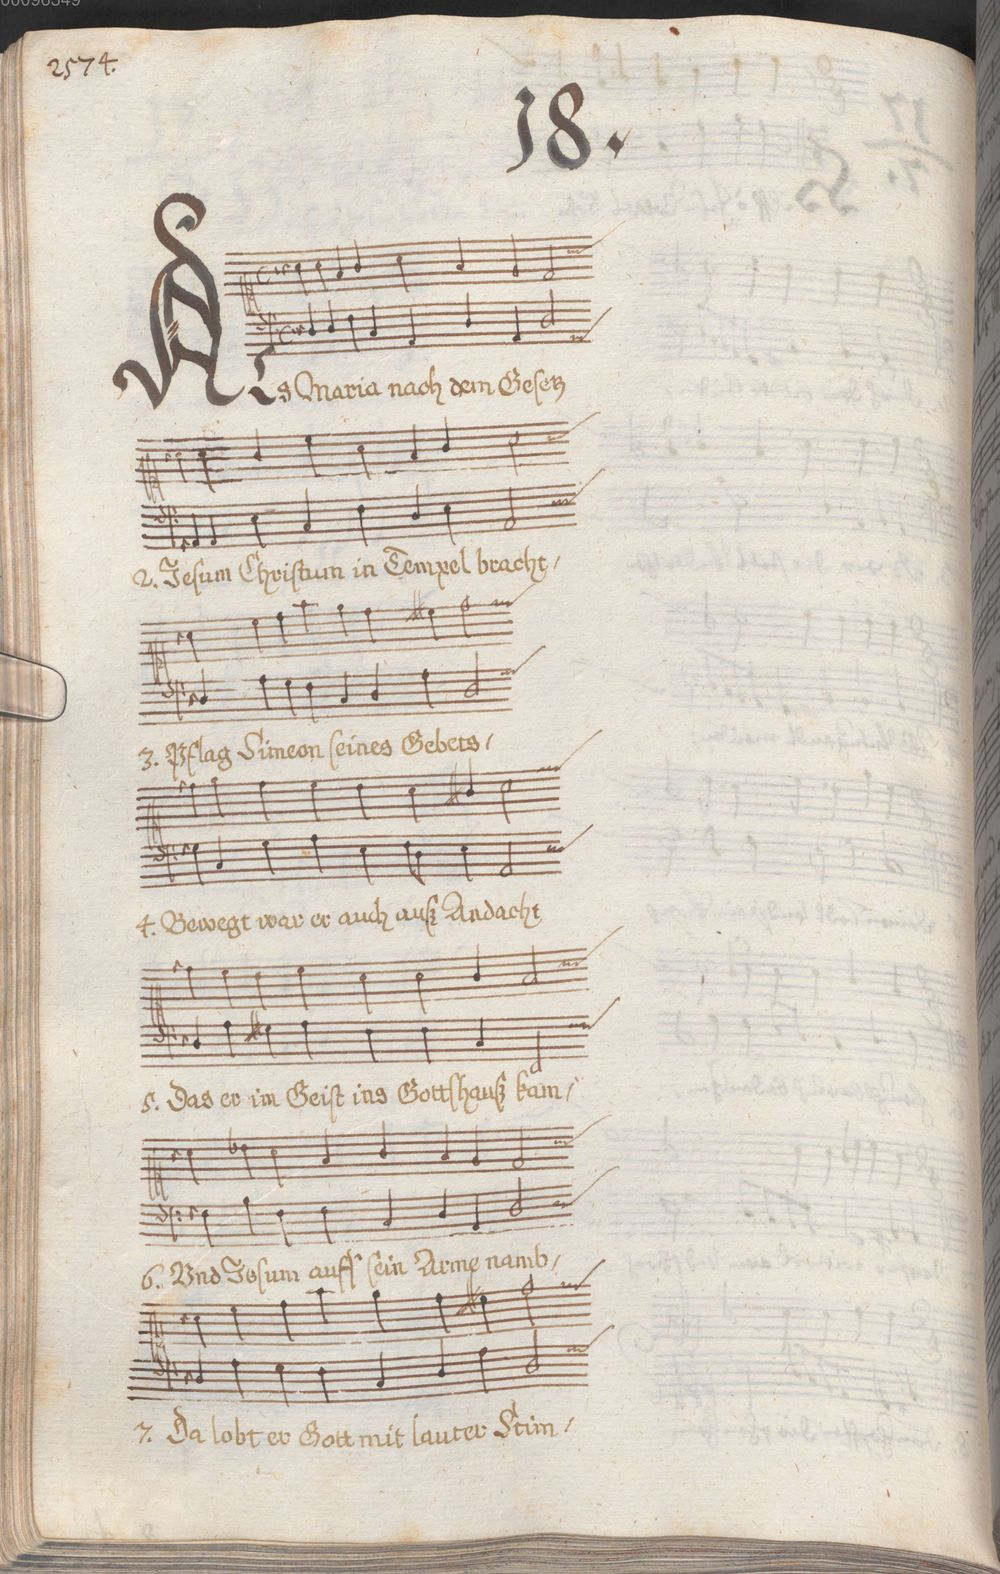 00096349
2574.
18.
Als Maria nach dem Gesetz
2. Jesum Christum in Tempel bracht,
3. Pflag Simeon seines Gebets,
4. Bewegt war er auch auß Andacht
5. Das er im Geist ins Gottshauß kam,
6. Vnd Jesum auff sein Arme namb,
7. Da lobt er Gott mit lauter Stim,